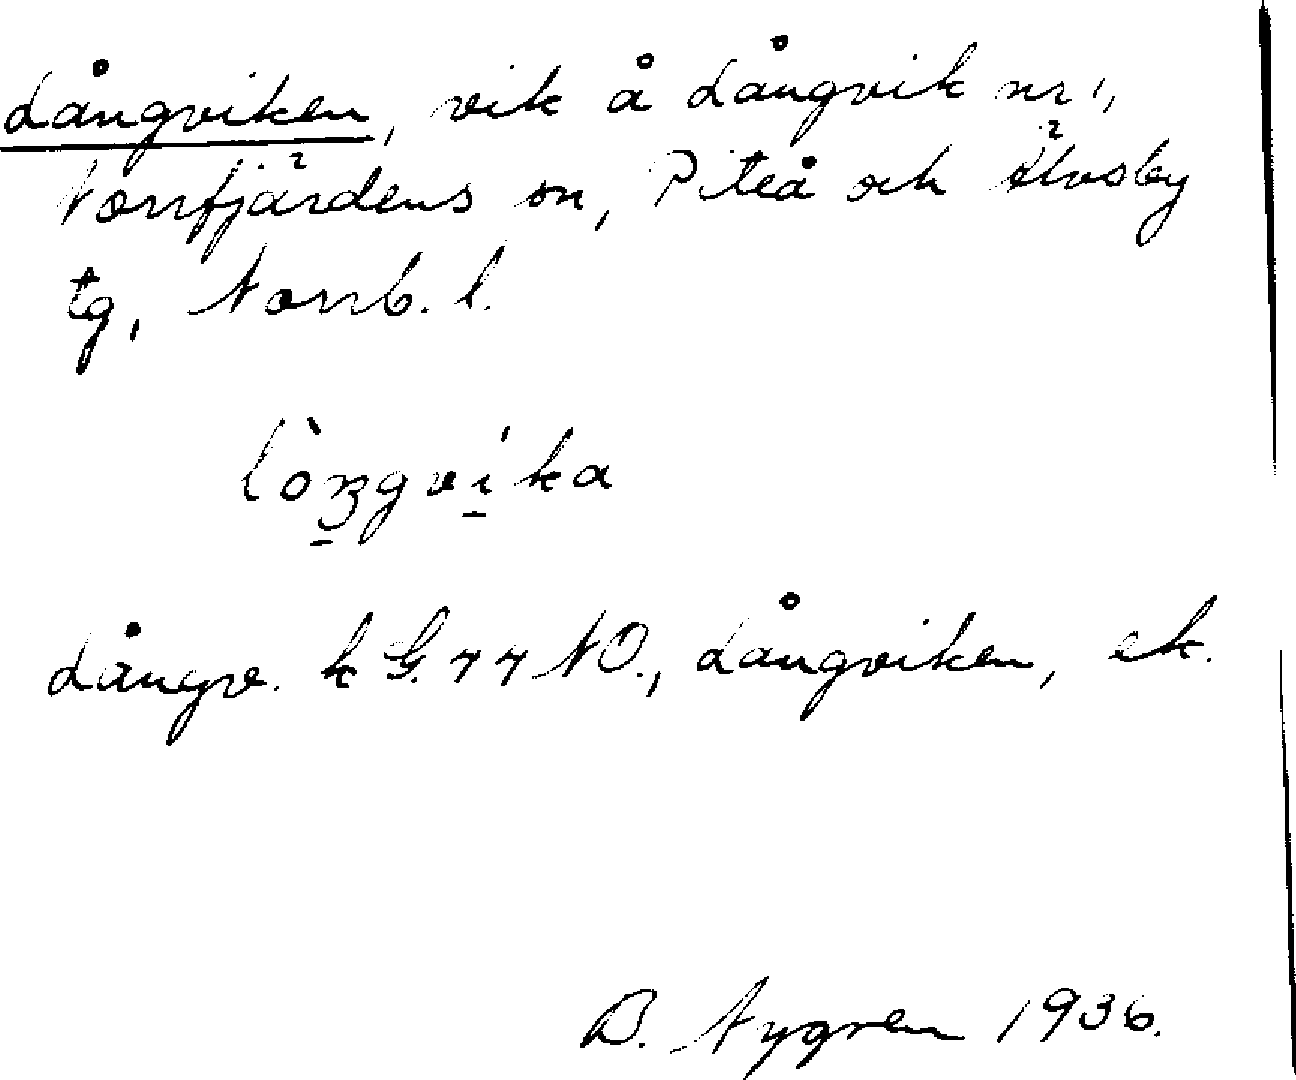 Långviken, vik å Långvik nr 1,
Norrfjärdens sn, Piteå och Älvsby
tg, Norrb. l.
Långv. k G. 77 NO., Långviken, ek.
B. Nygren 1936.